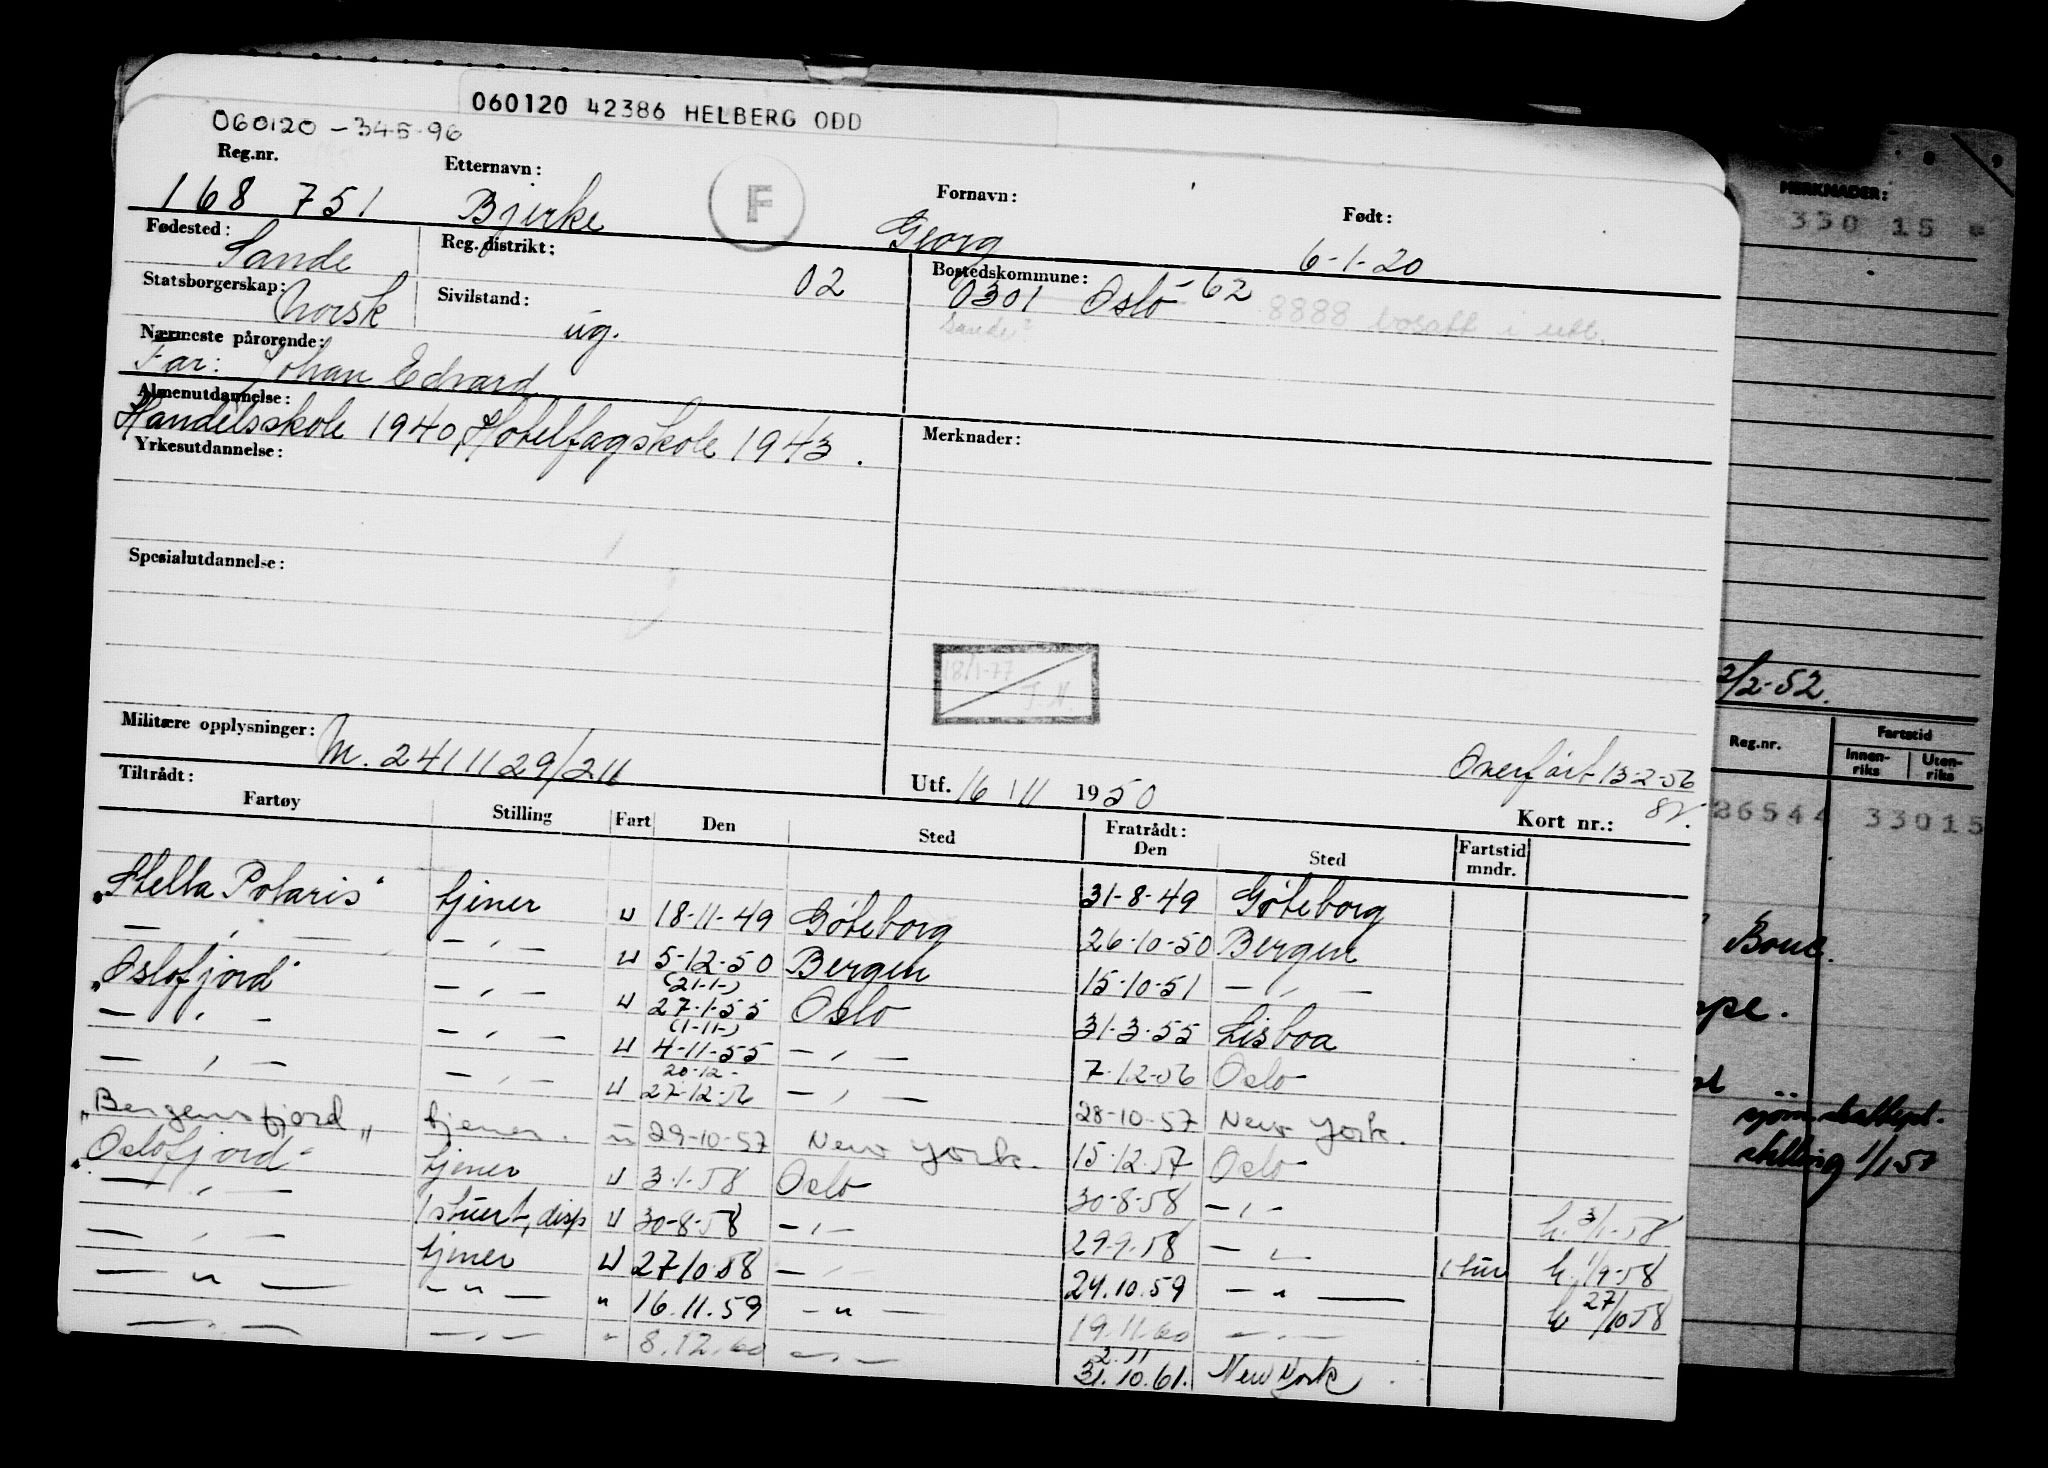 060120 42386 HELBERG ODD
060120-345-96
Reg.nr. Etternavn: Fornavn: Født:
168 751 Bjerke F Georg 6-1-20
Fødested: Reg. distrikt: Bostedskommune:
Sande 02 0301 Oslo -62 8888 bosatt i utl.
Statsborgerskap: Sivilstand:
Norsk ug.
Nærmeste pårørende:
Far: Johan Edvard
Almenutdannelse:
Handelsskole 1940, Hotelfagskole 1943.
Yrkesutdannelse: Merknader:
Spesialutdannelse:
18/1-77
Militære opplysninger:
M. 2411129/211
Overført 13-2-56
Utf. 16/11 1950 Kort nr.:
Tiltrådt: Fratrådt:
Fartøy Stilling Fart Den Sted Den Sted Fartstid mndr.
"Stella Polaris" tjener u 18-11-49 Göteborg 31-8-49 Göteborg
— " — — " — u 5-12-50 Bergen 26-10-50 Bergen
(21-1-)
"Oslofjord" — " — u 27-1-55 Oslo 15-10-51 — " —
(1-11-)
— " — — " — u 4-11-55 — " — 31-3-55 Lisboa
20-12-
— " — — " — u 27-12-56 — " — 7-12-56 Oslo
"Bergensfjord" tjener. u 29-10-57 New York. 28-10-57 New York.
"Oslofjord" tjener u 3-1-58 Oslo 15-12-57 Oslo
— " — 1 stuert, disp u 30-8-58 — " — 30-8-58 — " — 3/1-58
— " — tjener u 27/10-58 — " — 29-9-58 — " — 1/9-58
— " — — " — " 16.11.59 — " — 24.10.59 — " — 27/10 58
— " — — " — " 8.12.60 — " — 19.11.60 — " —
2.11
31.10.61. New York
MERKNADER:
330 15
2/2-52.
Reg.nr. Fartstid
Innenriks Utenriks
86544 33015
Boue.
stilling 1/1 57